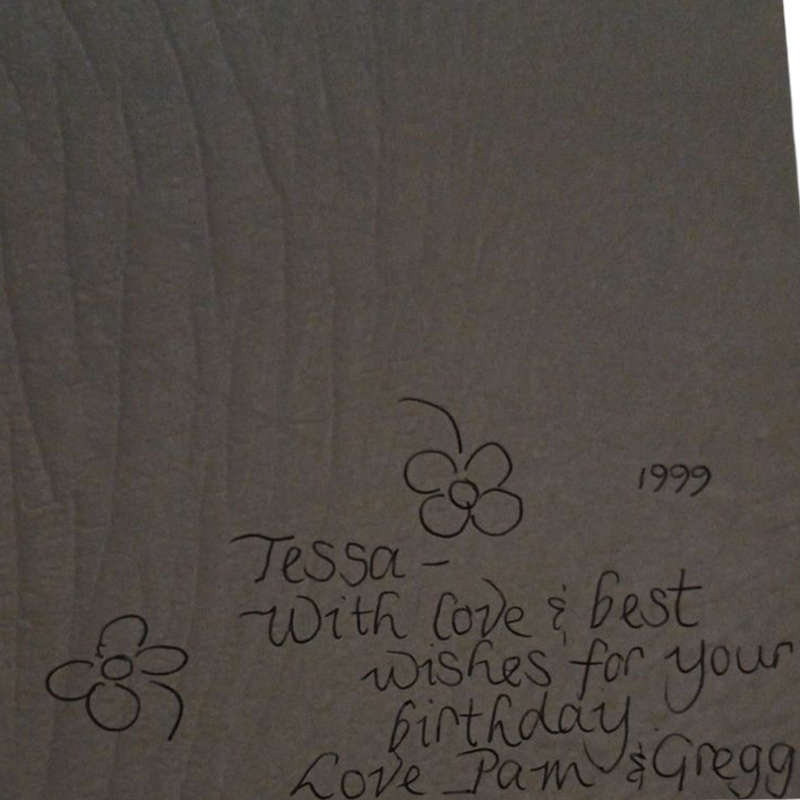 1999
Tessa -
With love & best
wishes for your
birthday.
Love Pam & Gregg